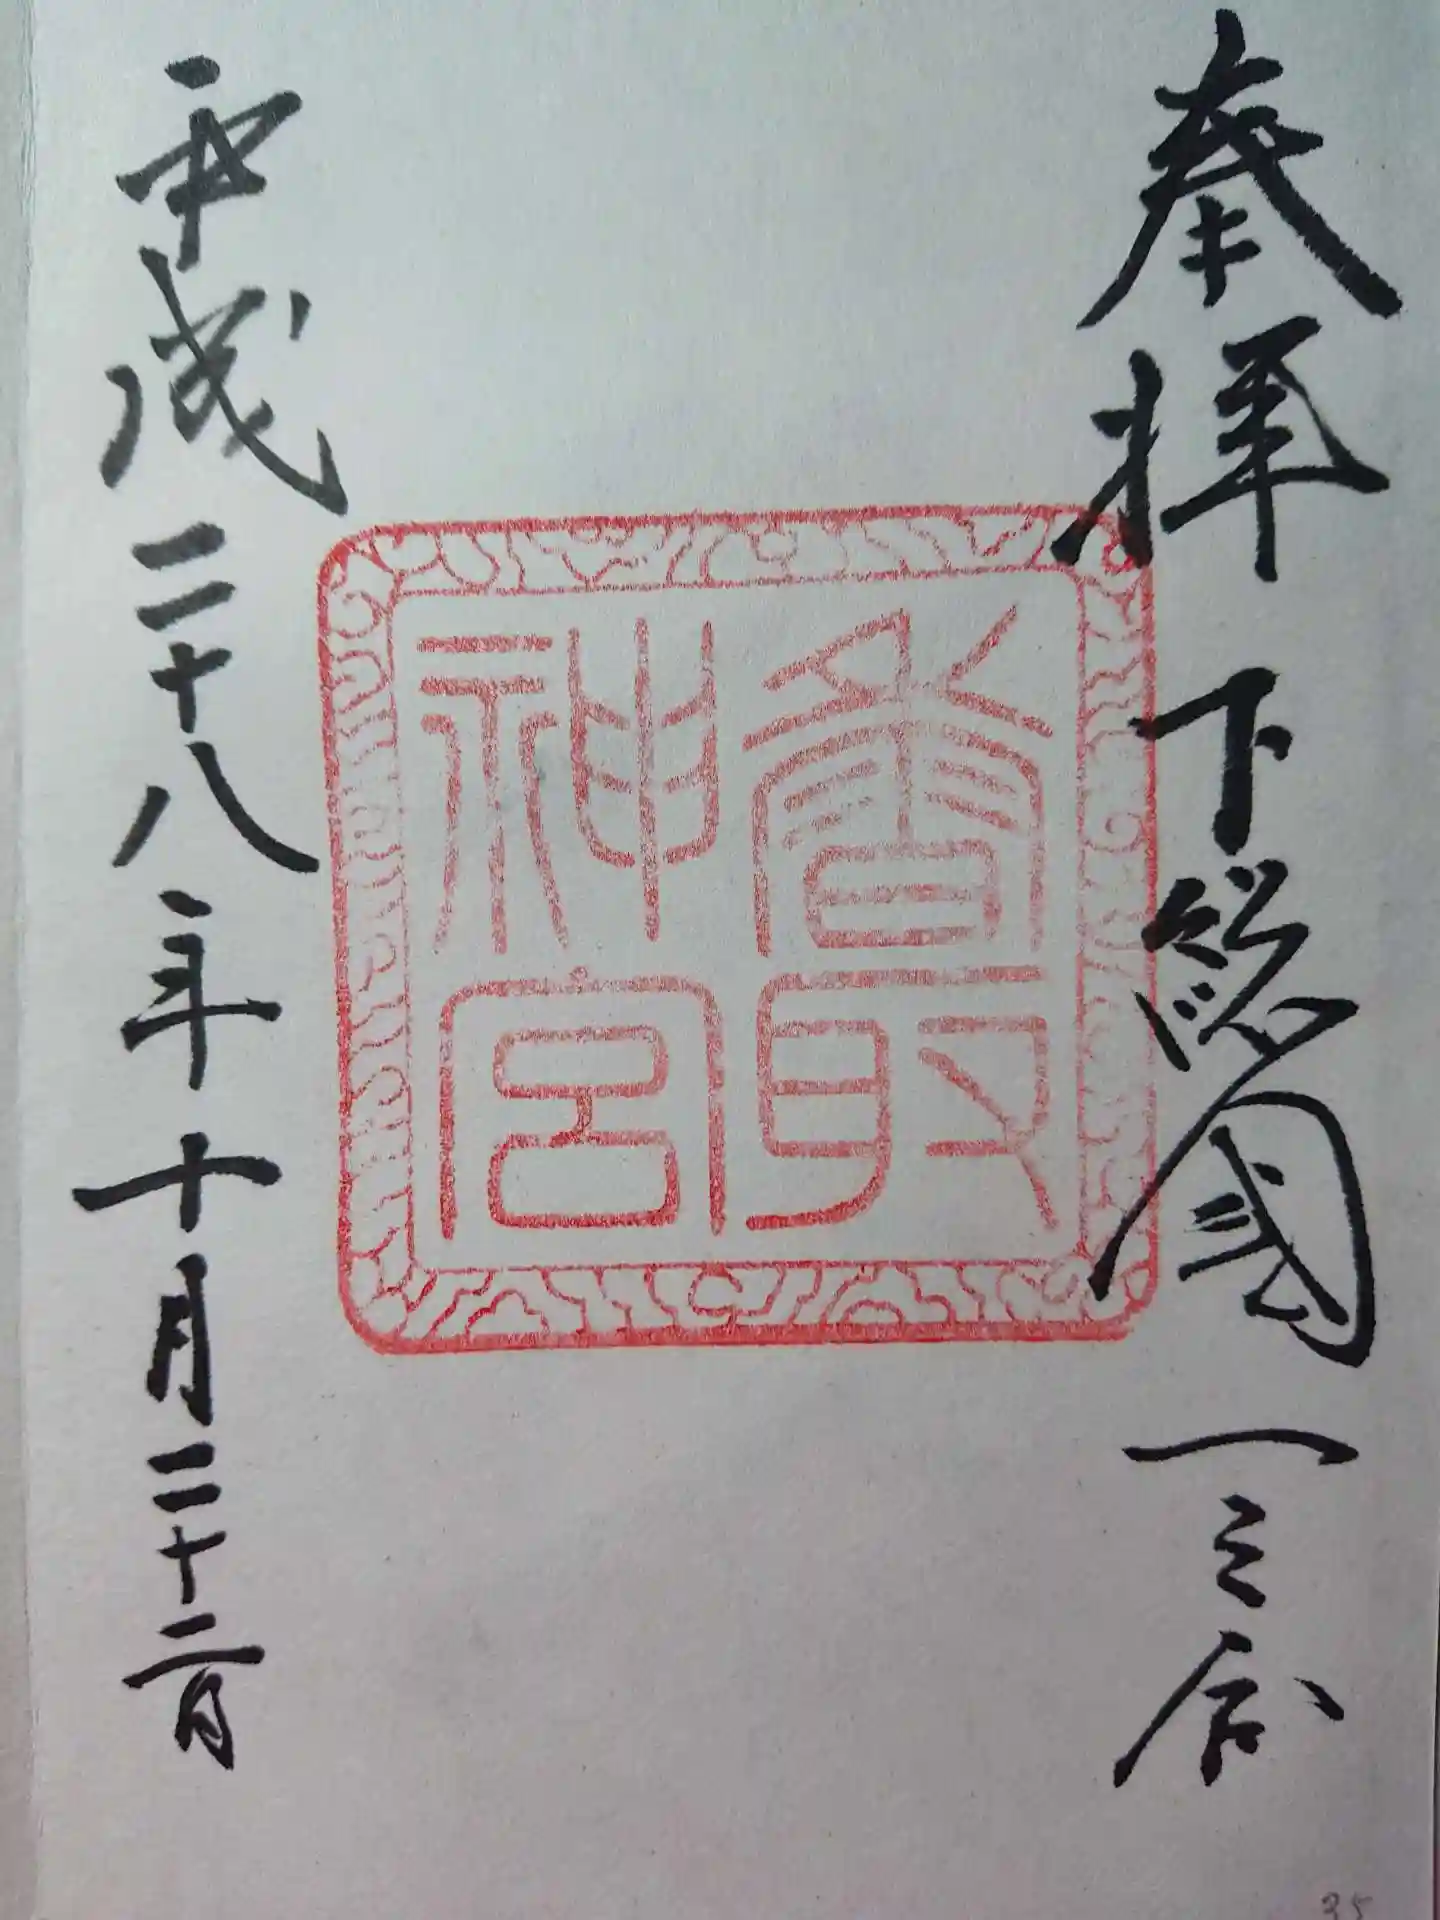 奉拝 下総國一之宮
香取
神宮
平成二十八年十月二十二日
35